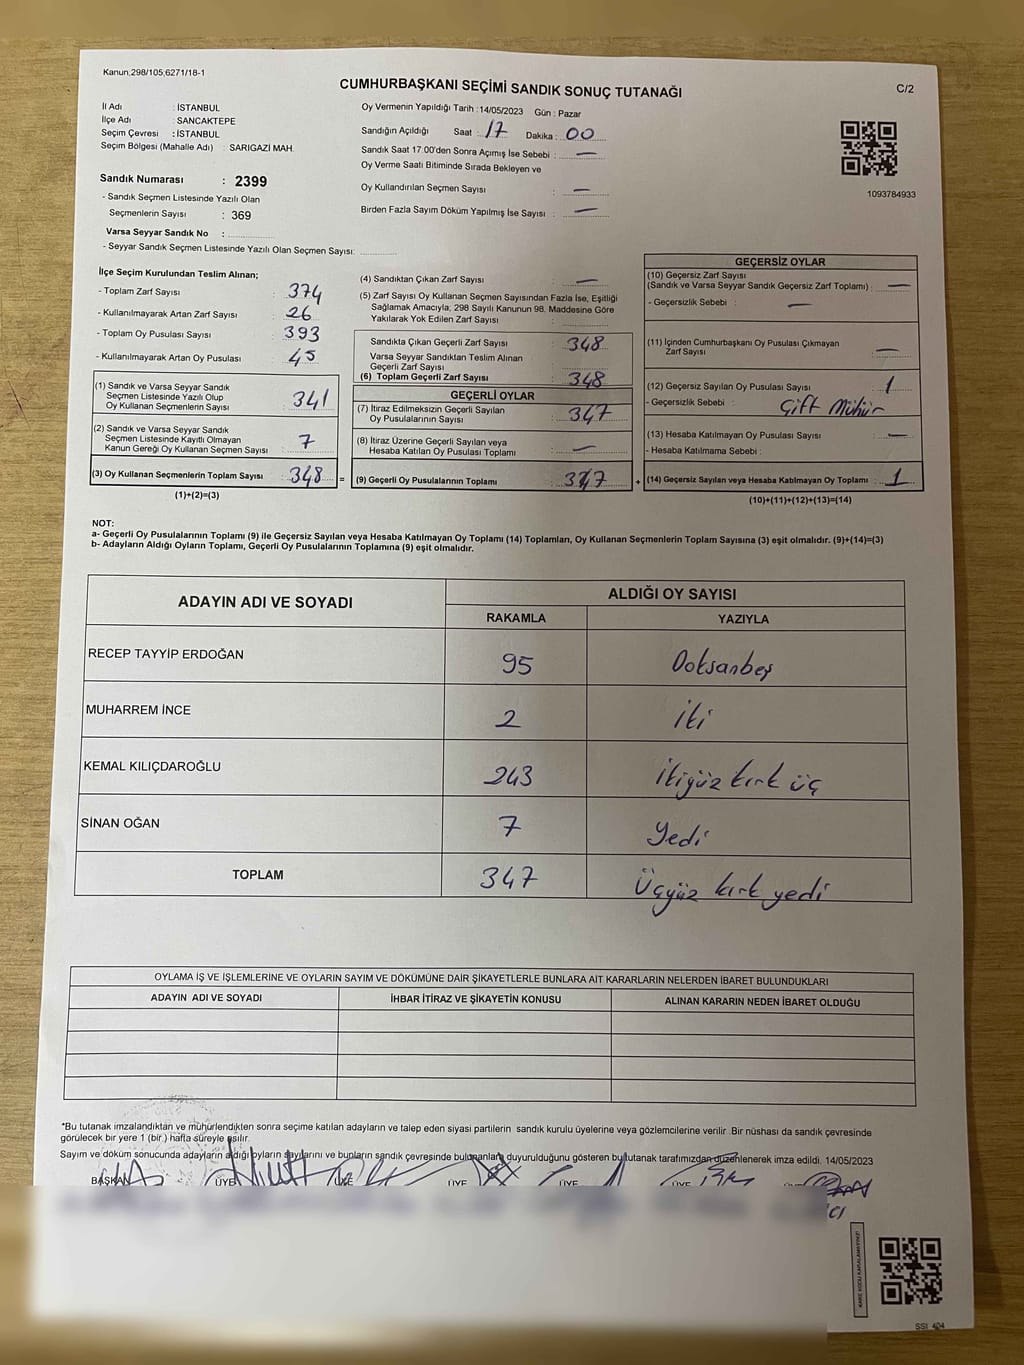 Kanun;298/105;6271/18-1
CUMHURBAŞKANI SEÇİMİ SANDIK SONUÇ TUTANAĞI
C/2
İl Adı : İSTANBUL
İlçe Adı : SANCAKTEPE
Seçim Çevresi : İSTANBUL
Seçim Bölgesi (Mahalle Adı) : SARIGAZİ MAH.
Sandık Numarası : 2399
- Sandık Seçmen Listesinde Yazılı Olan
Seçmenlerin Sayısı : 369
Varsa Seyyar Sandık No :
- Seyyar Sandık Seçmen Listesinde Yazılı Olan Seçmen Sayısı:
Oy Vermenin Yapıldığı Tarih : 14/05/2023 Gün : Pazar
Sandığın Açıldığı Saat : 17 Dakika : 00
Sandık Saat 17.00'den Sonra Açımış İse Sebebi : —
Oy Verme Saati Bitiminde Sırada Bekleyen ve
Oy Kullandırılan Seçmen Sayısı : —
Birden Fazla Sayım Döküm Yapılmış İse Sayısı : —
1093784933
İlçe Seçim Kurulundan Teslim Alınan;
- Toplam Zarf Sayısı : 374
- Kullanılmayarak Artan Zarf Sayısı : 26
- Toplam Oy Pusulası Sayısı : 393
- Kullanılmayarak Artan Oy Pusulası : 45
(1) Sandık ve Varsa Seyyar Sandık
Seçmen Listesinde Yazılı Olup
Oy Kullanan Seçmenlerin Sayısı : 341
(2) Sandık ve Varsa Seyyar Sandık
Seçmen Listesinde Kayıtlı Olmayan
Kanun Gereği Oy Kullanan Seçmen Sayısı : 7
(3) Oy Kullanan Seçmenlerin Toplam Sayısı : 348 =
(1)+(2)=(3)
(4) Sandıktan Çıkan Zarf Sayısı : —
(5) Zarf Sayısı Oy Kullanan Seçmen Sayısından Fazla İse, Eşitliği
Sağlamak Amacıyla, 298 Sayılı Kanunun 98. Maddesine Göre
Yakılarak Yok Edilen Zarf Sayısı :
Sandıkta Çıkan Geçerli Zarf Sayısı : 348
Varsa Seyyar Sandıktan Teslim Alınan
Geçerli Zarf Sayısı :
(6) Toplam Geçerli Zarf Sayısı : 348
GEÇERLİ OYLAR
(7) İtiraz Edilmeksizin Geçerli Sayılan
Oy Pusulalarının Sayısı : 347
(8) İtiraz Üzerine Geçerli Sayılan veya
Hesaba Katılan Oy Pusulası Toplamı : —
(9) Geçerli Oy Pusulalarının Toplamı : 347 +
GEÇERSİZ OYLAR
(10) Geçersiz Zarf Sayısı
(Sandık ve Varsa Seyyar Sandık Geçersiz Zarf Toplamı) : —
- Geçersizlik Sebebi : —
(11) İçinden Cumhurbaşkanı Oy Pusulası Çıkmayan
Zarf Sayısı : —
(12) Geçersiz Sayılan Oy Pusulası Sayısı : 1
- Geçersizlik Sebebi : Çift Mühür
(13) Hesaba Katılmayan Oy Pusulası Sayısı : —
- Hesaba Katılmama Sebebi :
(14) Geçersiz Sayılan veya Hesaba Katılmayan Oy Toplamı : 1
(10)+(11)+(12)+(13)=(14)
NOT:
a- Geçerli Oy Pusulalarının Toplamı (9) ile Geçersiz Sayılan veya Hesaba Katılmayan Oy Toplamı (14) Toplamları, Oy Kullanan Seçmenlerin Toplam Sayısına (3) eşit olmalıdır. (9)+(14)=(3)
b- Adayların Aldığı Oyların Toplamı, Geçerli Oy Pusulalarının Toplamına (9) eşit olmalıdır.
ADAYIN ADI VE SOYADI
ALDIĞI OY SAYISI
RAKAMLA YAZIYLA
RECEP TAYYİP ERDOĞAN 95 Doksanbeş
MUHARREM İNCE 2 İki
KEMAL KILIÇDAROĞLU 243 İkiyüz kırk üç
SİNAN OĞAN 7 Yedi
TOPLAM 347 Üçyüz kırk yedi
OYLAMA İŞ VE İŞLEMLERİNE VE OYLARIN SAYIM VE DÖKÜMÜNE DAİR ŞİKAYETLERLE BUNLARA AİT KARARLARIN NELERDEN İBARET BULUNDUKLARI
ADAYIN ADI VE SOYADI İHBAR İTİRAZ VE ŞİKAYETİN KONUSU ALINAN KARARIN NEDEN İBARET OLDUĞU
*Bu tutanak imzalandıktan ve mühürlendikten sonra seçime katılan adayların ve talep eden siyasi partilerin sandık kurulu üyelerine veya gözlemcilerine verilir. Bir nüshası da sandık çevresinde
görülecek bir yere 1 (bir) hafta süreyle asılır.
Sayım ve döküm sonucunda adayların aldığı oyların sayılarını ve bunların sandık çevresinde bulunanlara duyurulduğunu gösteren bu tutanak tarafımızdan düzenlenerek imza edildi. 14/05/2023
BAŞKAN ÜYE ÜYE ÜYE ÜYE ÜYE
KARE KODU KARALAMAYINIZ!
SSI 404